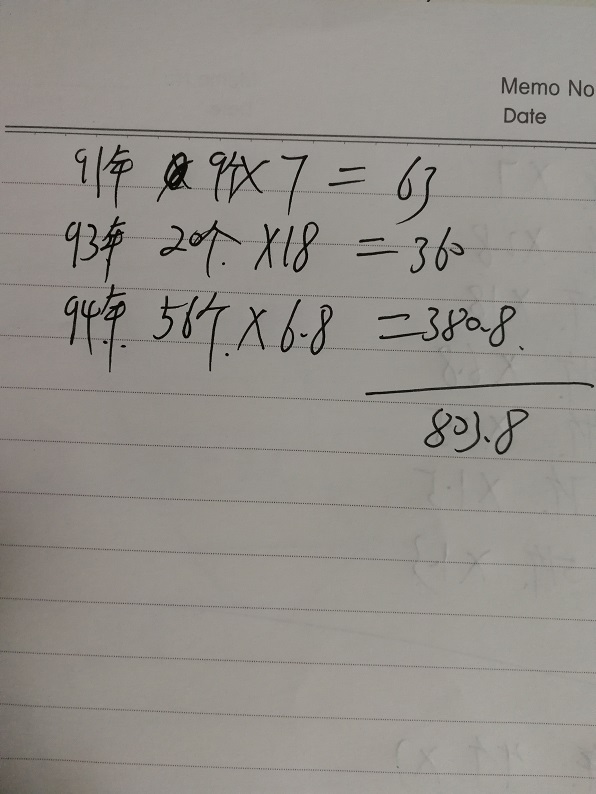 Memo No
Date
91年 9个×7 = 63
93年 20个.×18 = 360
94年. 56个.×6.8 =380.8.
803.8